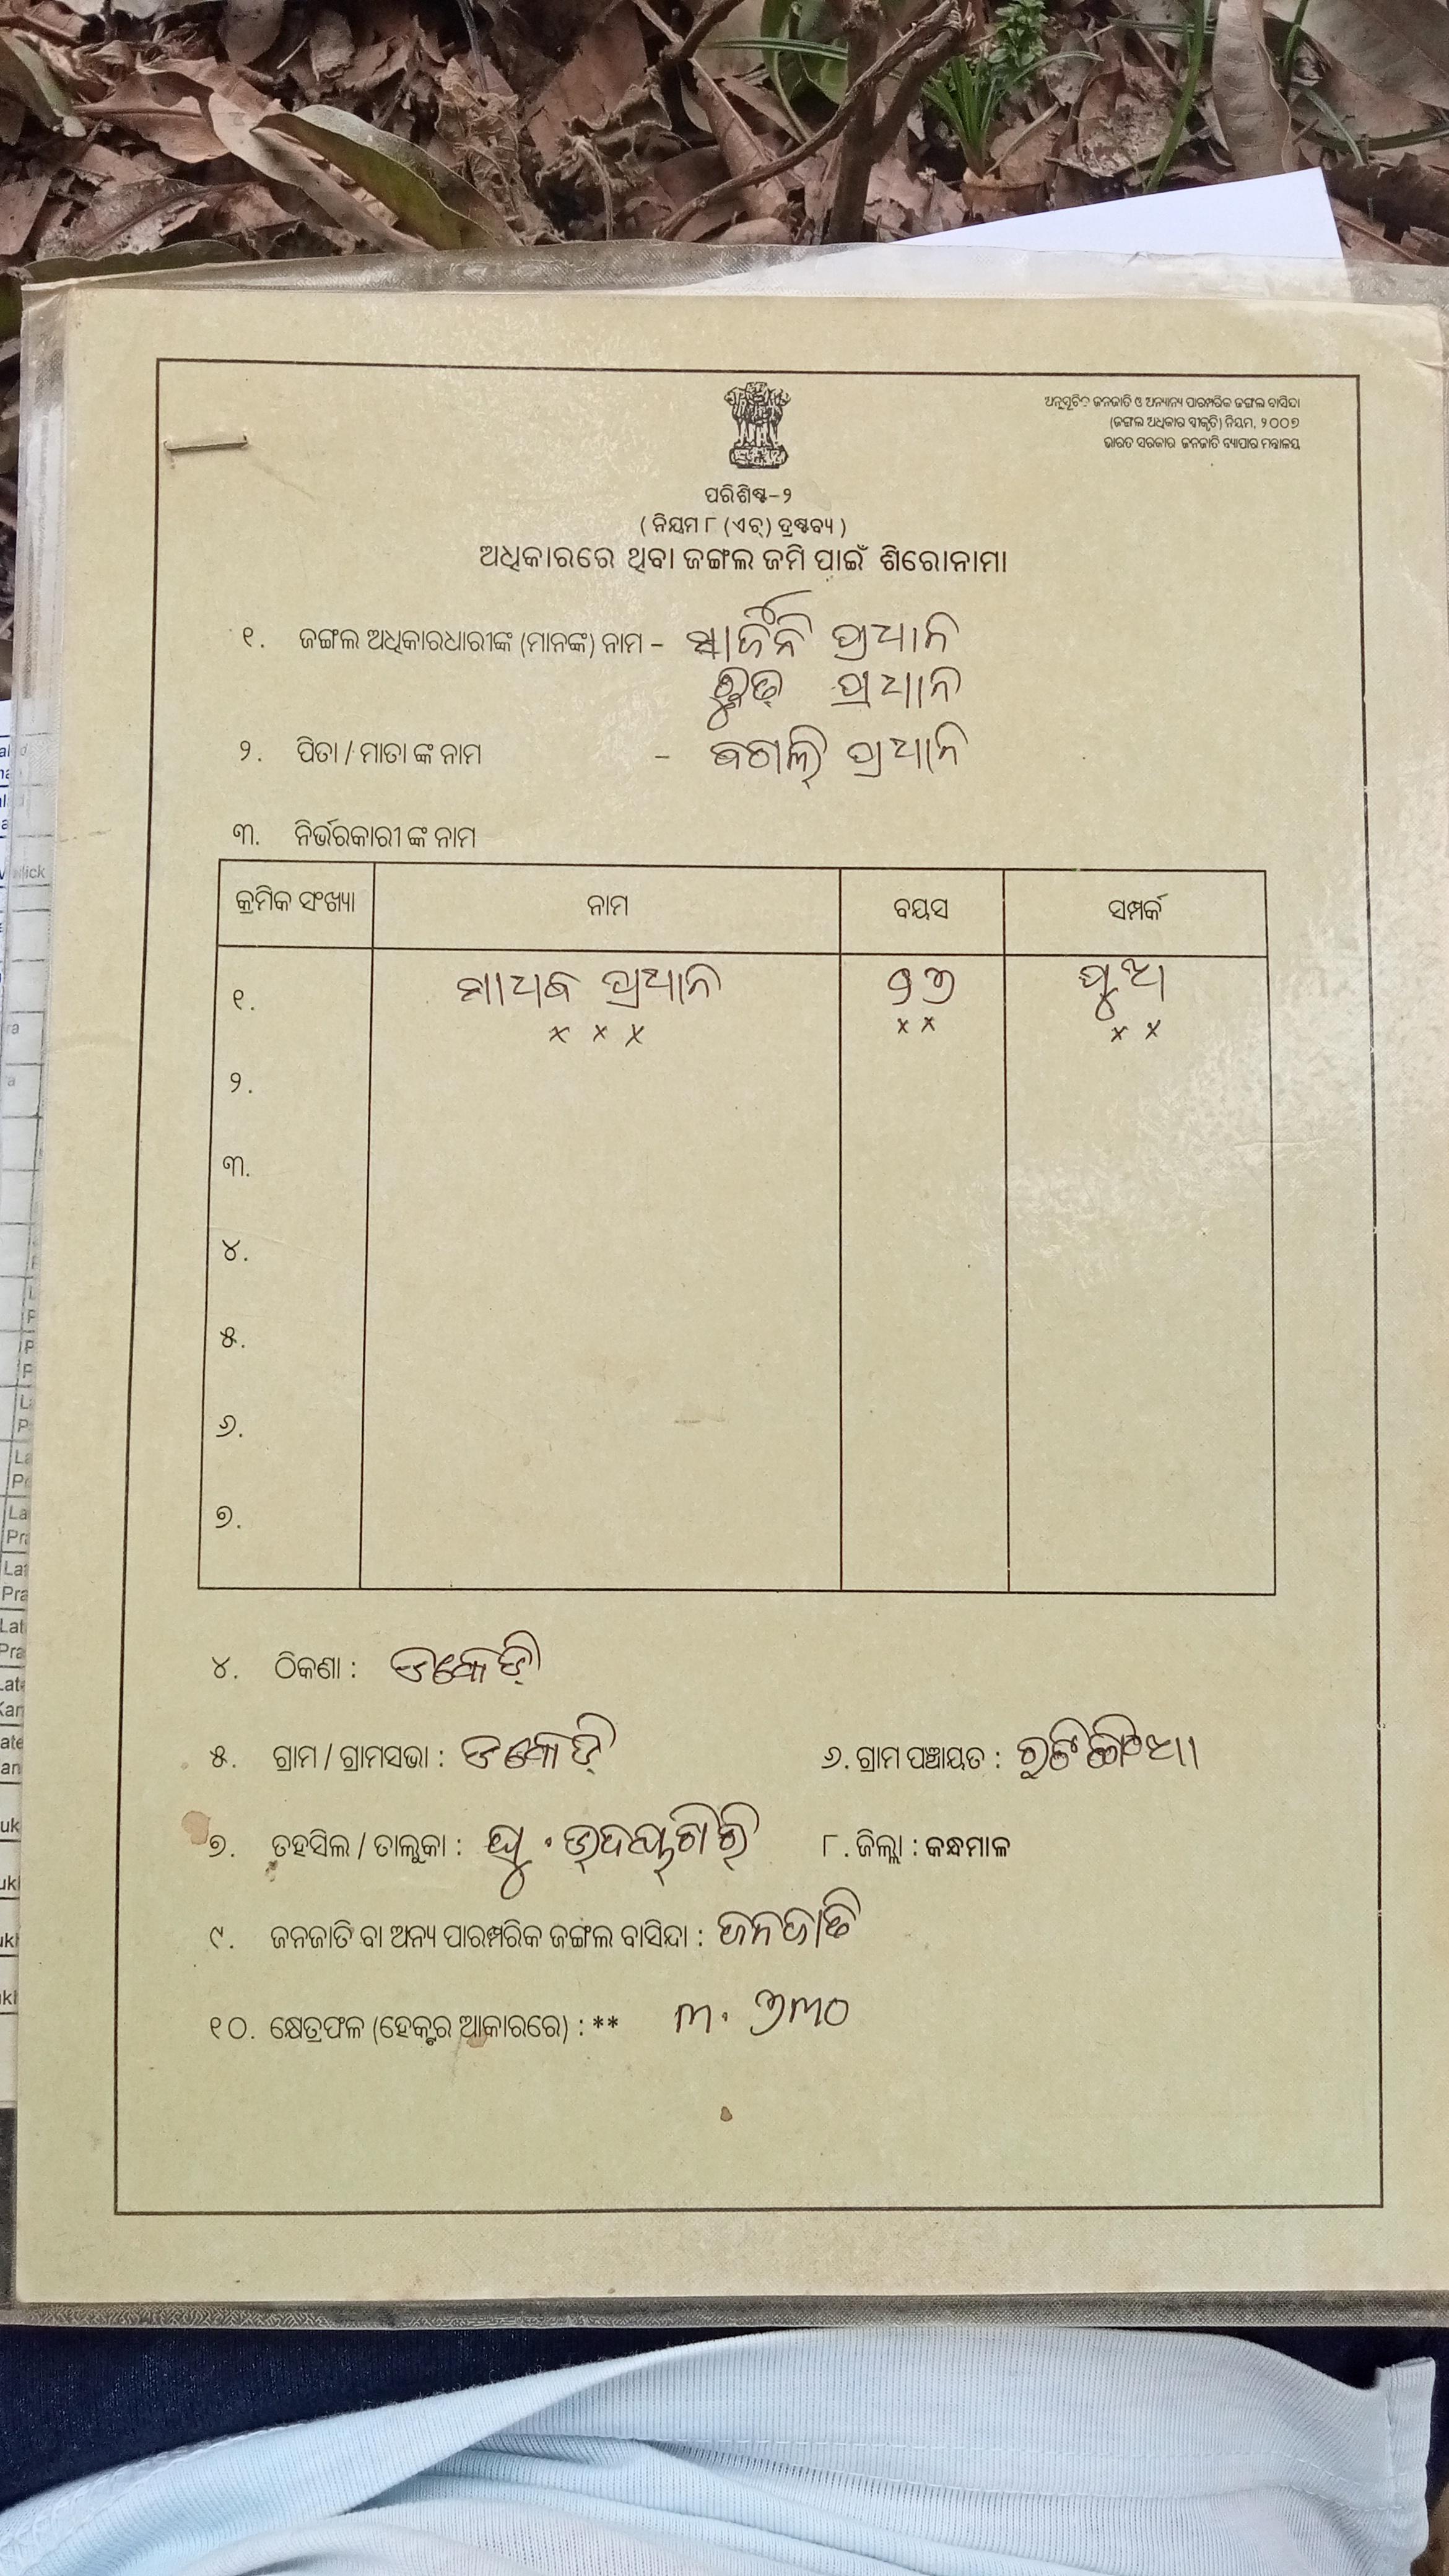 ଅନୁସୂଚିତ ଜନଜାତି ଓ ଅନ୍ୟାନ୍ୟ ପାରମ୍ପରିକ ଜଙ୍ଗଲ ବାସିନ୍ଦା
(ଜଙ୍ଗଲ ଅଧିକାର ସ୍ୱୀକୃତି) ନିୟମ, ୨୦୦୭
ଭାରତ ସରକାର ଜନଜାତି ବ୍ୟାପାର ମନ୍ତ୍ରାଳୟ
ପରିଶିଷ୍ଟ-୨
( ନିୟମ ୮ (ଏଚ୍) ଦ୍ରଷ୍ଟବ୍ୟ )
ଅଧିକାରରେ ଥିବା ଜଙ୍ଗଲ ଜମି ପାଇଁ ଶିରୋନାମା
୧. ଜଙ୍ଗଲ ଅଧିକାରଧାରୀଙ୍କ (ମାନଙ୍କ) ନାମ - ପ୍ରଧାନ
ପ୍ରଧାନ
୨. ପିତା / ମାତା ଙ୍କ ନାମ - ପ୍ରଧାନ
୩. ନିର୍ଭରକାରୀ ଙ୍କ ନାମ
କ୍ରମିକ ସଂଖ୍ୟା ନାମ ବୟସ ସମ୍ପର୍କ
୧. ମାଧବ ପ୍ରଧାନ ୨୬ ପୁଅ
x x x x x x x
୨.
୩.
୪.
୫.
୬.
୭.
୪. ଠିକଣା :
୫. ଗ୍ରାମ / ଗ୍ରାମସଭା : ୬. ଗ୍ରାମ ପଞ୍ଚାୟତ :
୭. ତହସିଲ / ତାଲୁକା : ଜି . ଉଦୟଗିରି ୮. ଜିଲ୍ଲା : କନ୍ଧମାଳ
୯. ଜନଜାତି ବା ଅନ୍ୟ ପାରମ୍ପରିକ ଜଙ୍ଗଲ ବାସିନ୍ଦା : ଜନଜାତି
୧୦. କ୍ଷେତ୍ରଫଳ (ହେକ୍ଟର ଆକାରରେ) : ** ୩.୬୩୦